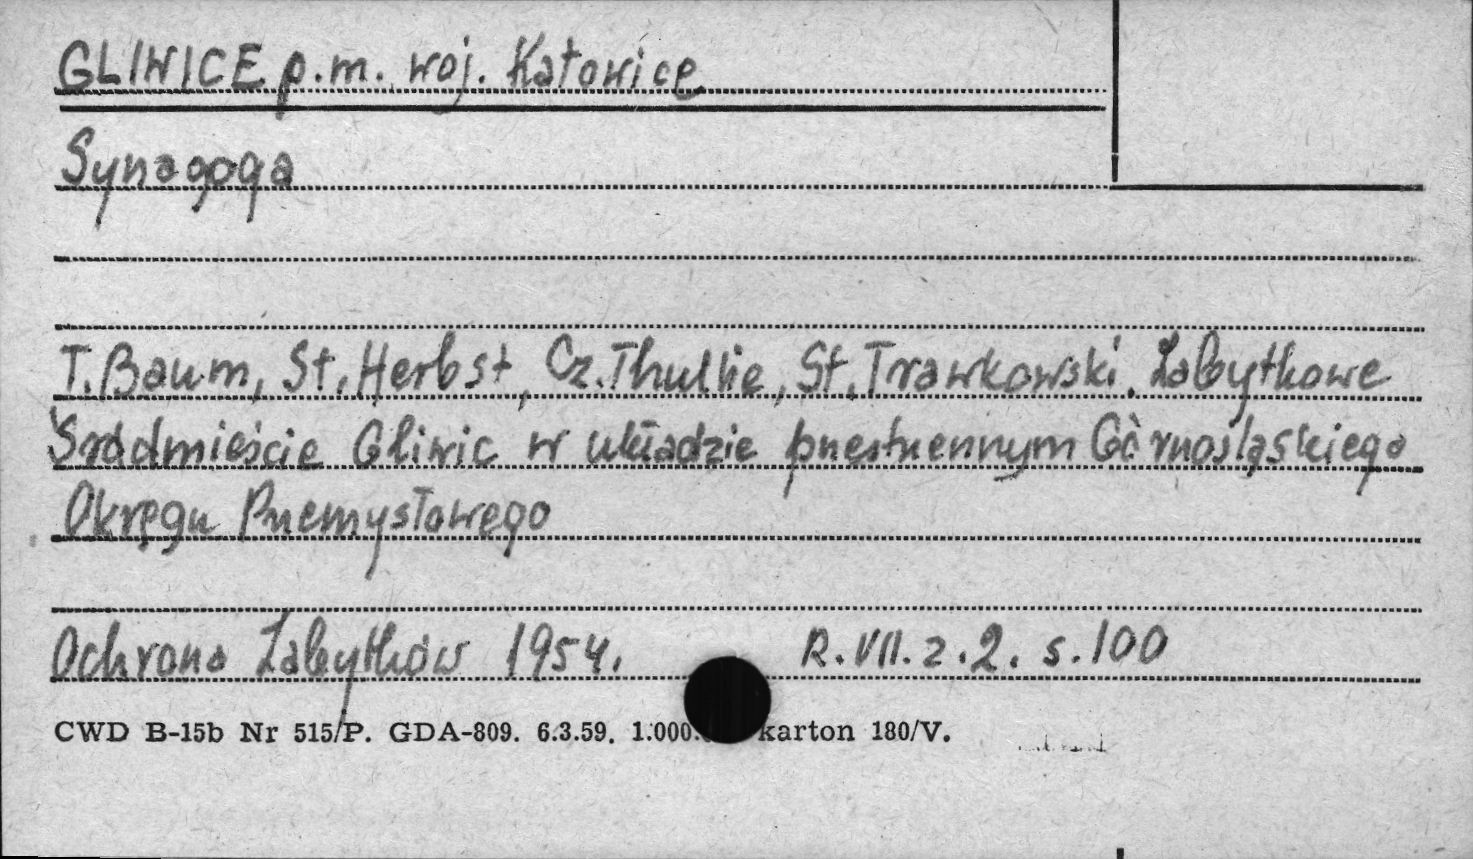 GLIWICE p.m. woj. Katowice
Synagoga
T. Baum, St. Herbst, Cz. Thullie, St. Trawkowski. Zabytkowe
Śródmieście Gliwic w układzie przestrzennym Górnośląskiego
Okręgu Przemysłowego
Ochrona Zabytków 1954. R. VII. z. 2. s. 100
CWD B-15b Nr 515/P. GDA-809. 6.3.59. 1.000. karton 180/V.